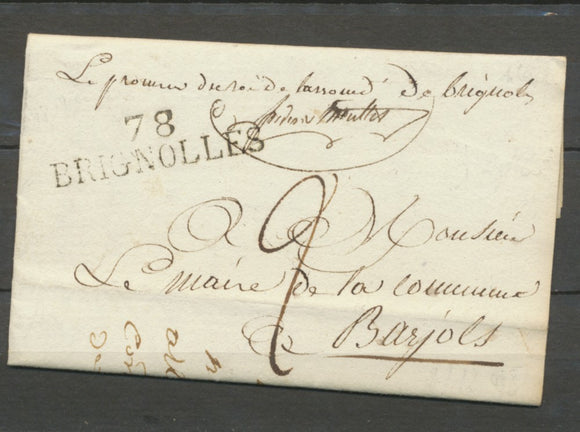 Le procureur du roi de larrond. de Brignoles
78
BRIGNOLLES
A Monsieur
Le maire de la commune
de Barjols